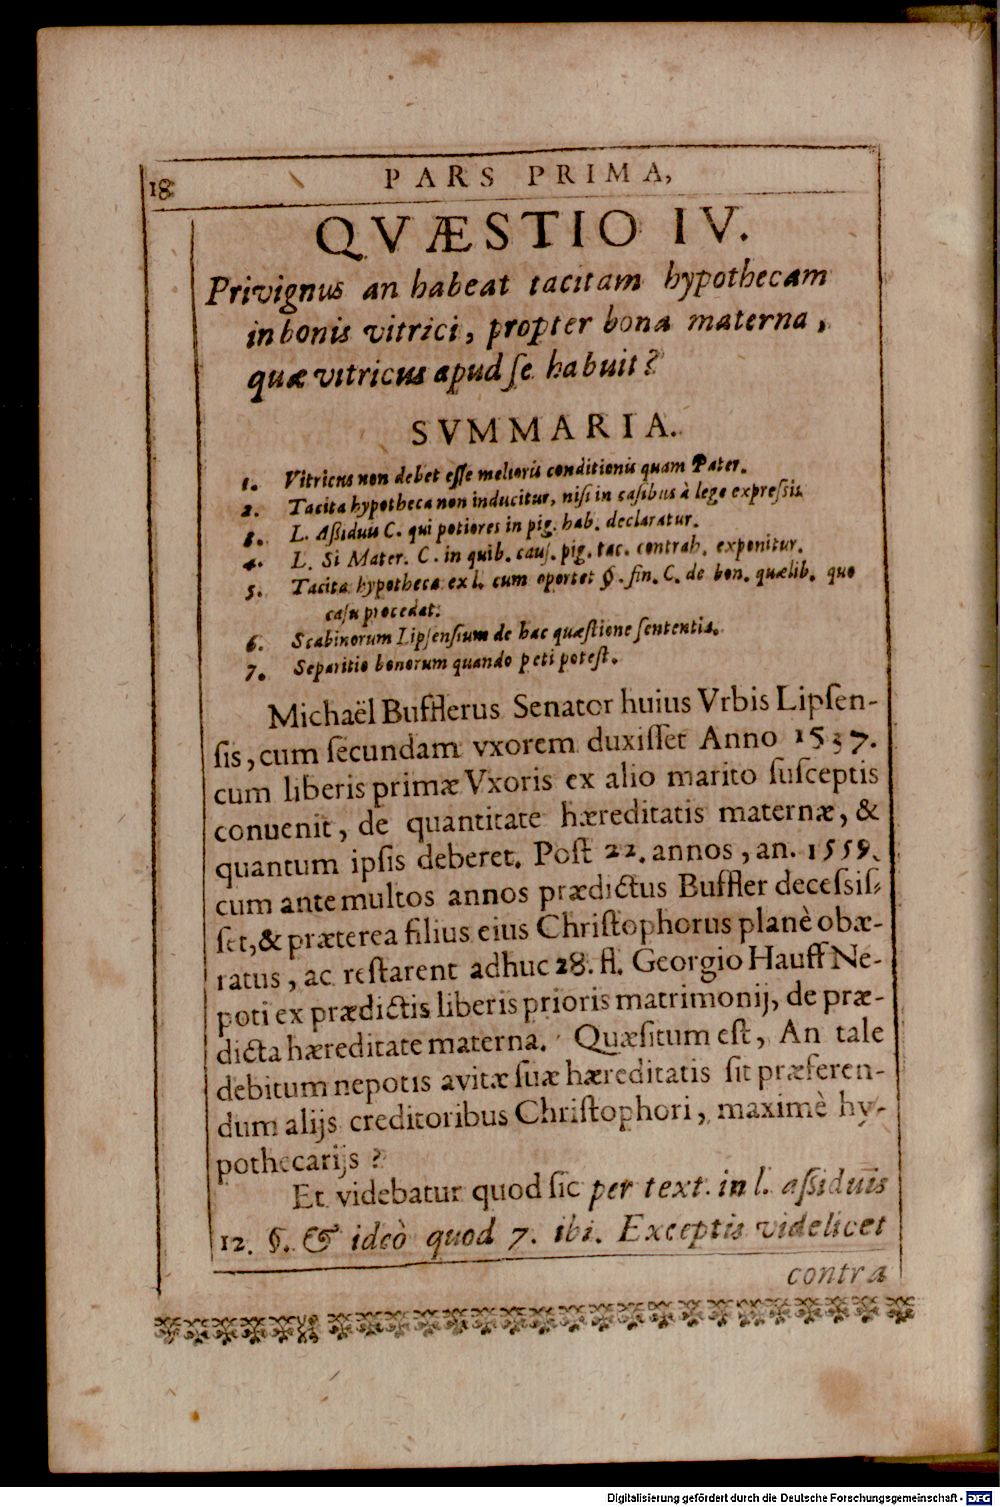 18
PARS PRIMA,
QVÆSTIO IV.
Privignus an habeat tacitam hypothecam
in bonis vitrici, propter bona materna,
quæ vitricus apud ſe habuit?
SVMMARIA.
1. Vitricus non debet eſſe melioris conditionis quam Pater.
2. Tacita hypotheca non inducitur, niſi in caſibus à lege expreſsis.
3. L. Aſsiduis C. qui potiores in pig. hab. declaratur.
4. L. Si Mater. C. in quib. cauſ. pig. tac. contrah. exponitur.
5. Tacita hypotheca ex l. cum oportet §. fin. C. de bon. quælib. quo
caſu procedat.
6. Scabinorum Lipſenſium de hac quæſtione ſententia.
7. Separitio bonorum quando peti poteſt.
Michaël Bufflerus Senator huius Vrbis Lipſen-
ſis, cum ſecundam vxorem duxiſſet Anno 1537.
cum liberis primæ Vxoris ex alio marito ſuſceptis
conuenit, de quantitate hæreditatis maternæ, &
quantum ipſis deberet. Poſt 22. annos, an. 1559.
cum ante multos annos prædictus Buffler deceſsiſ-
ſet, & præterea filius eius Chriſtophorus planè obæ-
ratus, ac reſtarent adhuc 28. fl. Georgio Hauff Ne-
poti ex prædictis liberis prioris matrimonij, de præ-
dicta hæreditate materna. Quæſitum eſt, An tale
debitum nepotis avitæ ſuæ hæreditatis ſit præferen-
dum alijs creditoribus Chriſtophori, maximè hy-
pothecarijs?
Et videbatur quod ſic per text. in l. aſsiduis
12. §. & ideò quod 7. ibi. Exceptis videlicet
contra
Digitalisierung gefördert durch die Deutsche Forschungsgemeinschaft - DFG